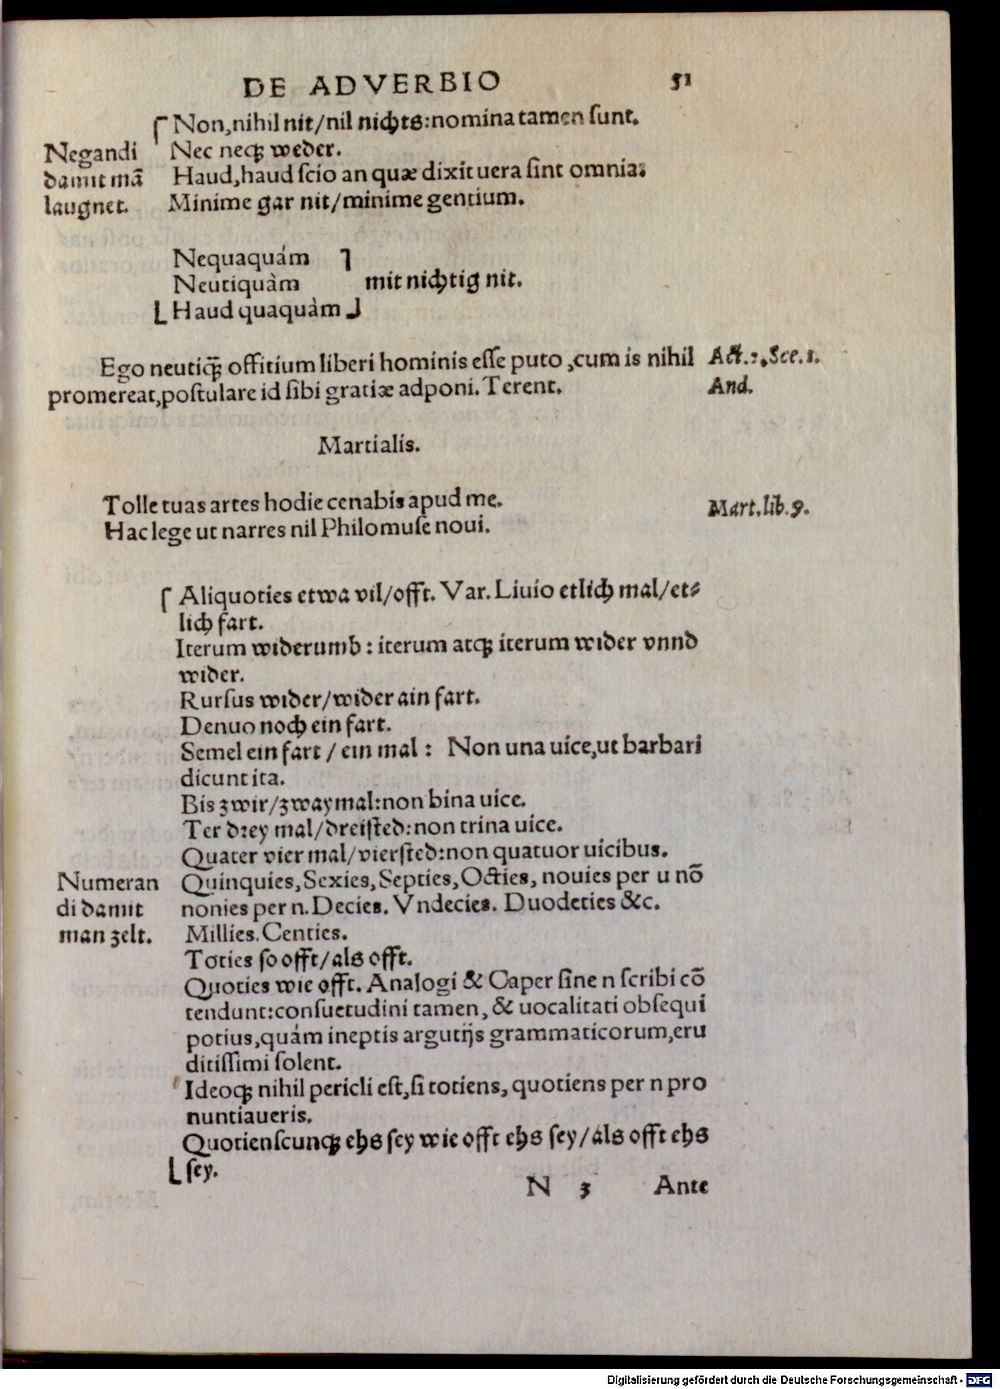 DE ADVERBIO 51
Non, nihil nit/nil nichts: nomina tamen sunt.
Negandi Nec neqꝫ weder.
damit mã Haud, haud scio an quæ dixit uera sint omnia:
laugnet. Minime gar nit/minime gentium.
Nequaquám
Neutiquàm mit nichtig nit.
Haud quaquàm
Ego neutiq̃ꝫ offitium liberi hominis esse puto, cum is nihil Act. 2. Sce. 1.
promereat, postulare id sibi gratiæ adponi. Terent. And.
Martialis.
Tolle tuas artes hodie cenabis apud me.
Hac lege ut narres nil Philomuse noui. Mart. lib. 9.
Aliquoties etwa vil/offt. Var. Liuio etlich mal/et⸗
lich fart.
Iterum widerumb: iterum atqꝫ iterum wider vnnd
wider.
Rursus wider/wider ain fart.
Denuo noch ein fart.
Semel ein fart / ein mal: Non una uice, ut barbari
dicunt ita.
Bis zwir/zwaymal: non bina uice.
Ter drey mal/dreisted: non trina uice.
Quater vier mal/viersted: non quatuor uicibus.
Numeran Quinquies, Sexies, Septies, Octies, nouies per u nõ
di damit nonies per n. Decies. Vndecies. Duodeties &c.
man zelt. Millies. Centies.
Toties so offt/als offt.
Quoties wie offt. Analogi & Caper sine n scribi cõ
tendunt: consuetudini tamen, & uocalitati obsequi
potius, quám ineptis argutijs grammaticorum, eru
ditissimi solent.
Ideoqꝫ nihil pericli est, si totiens, quotiens per n pro
nuntiaueris.
Quotienscunqꝫ ehs sey wie offt ehs sey/als offt ehs
sey.
N 3 Ante
Digitalisierung gefördert durch die Deutsche Forschungsgemeinschaft - DFG